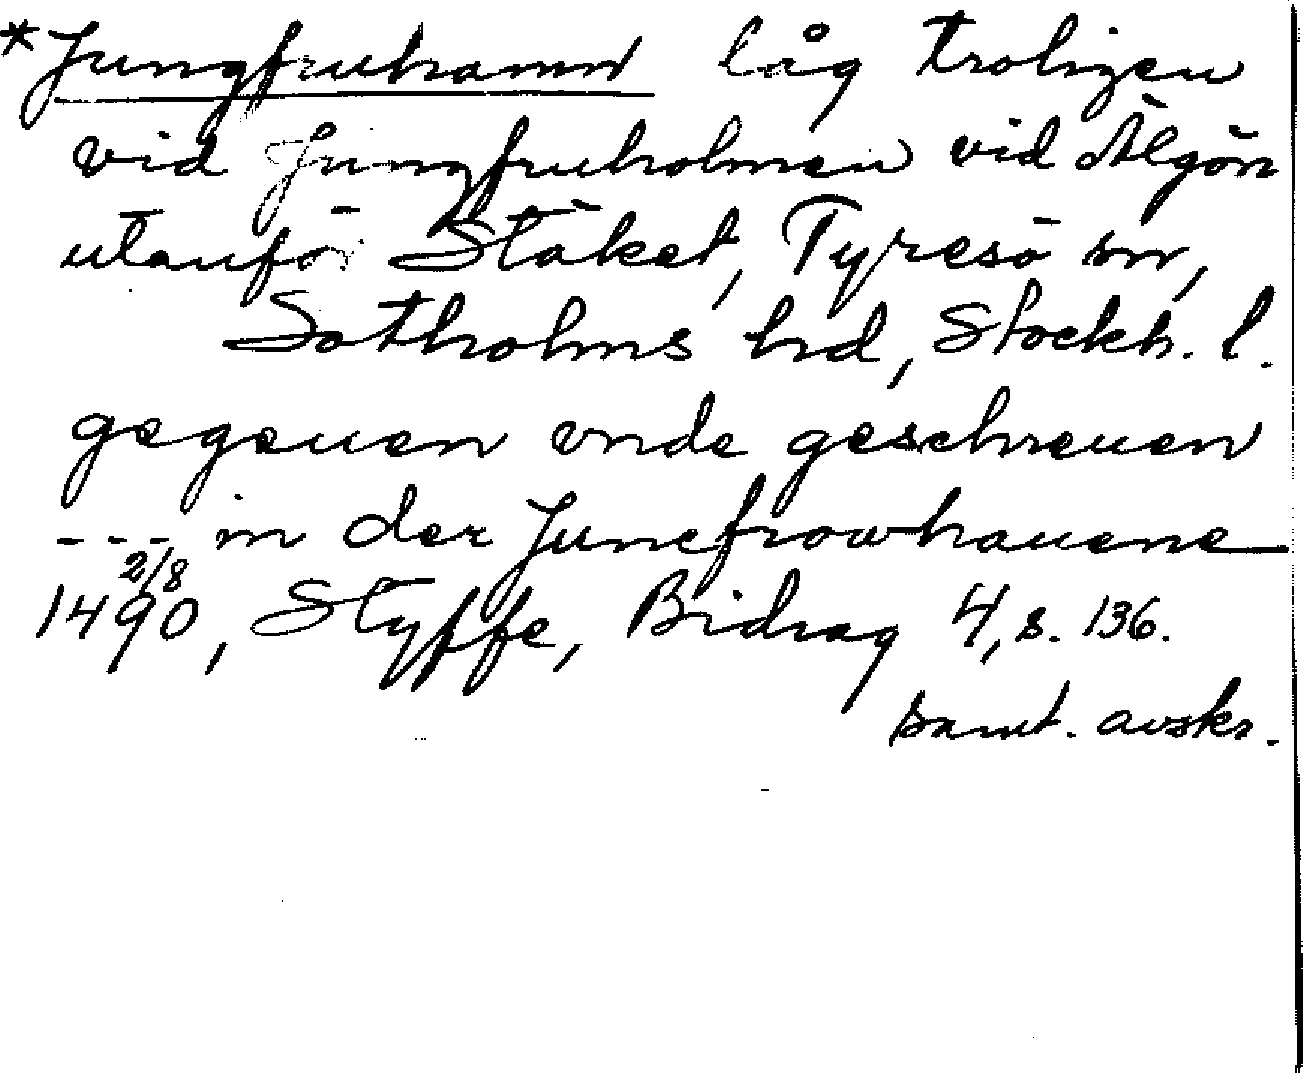 *Jungfruhamn låg troligen
vid Jungfruholmen vid Älgön
utanför Stäket, Tyresö sn,
Sotholms hd, Stockh. l.
gegeuen vnde geschreuen
--- in der Juncfrowhauene
2/8
1490, Styffe, Bidrag 4, s. 136.
samt. avskr.